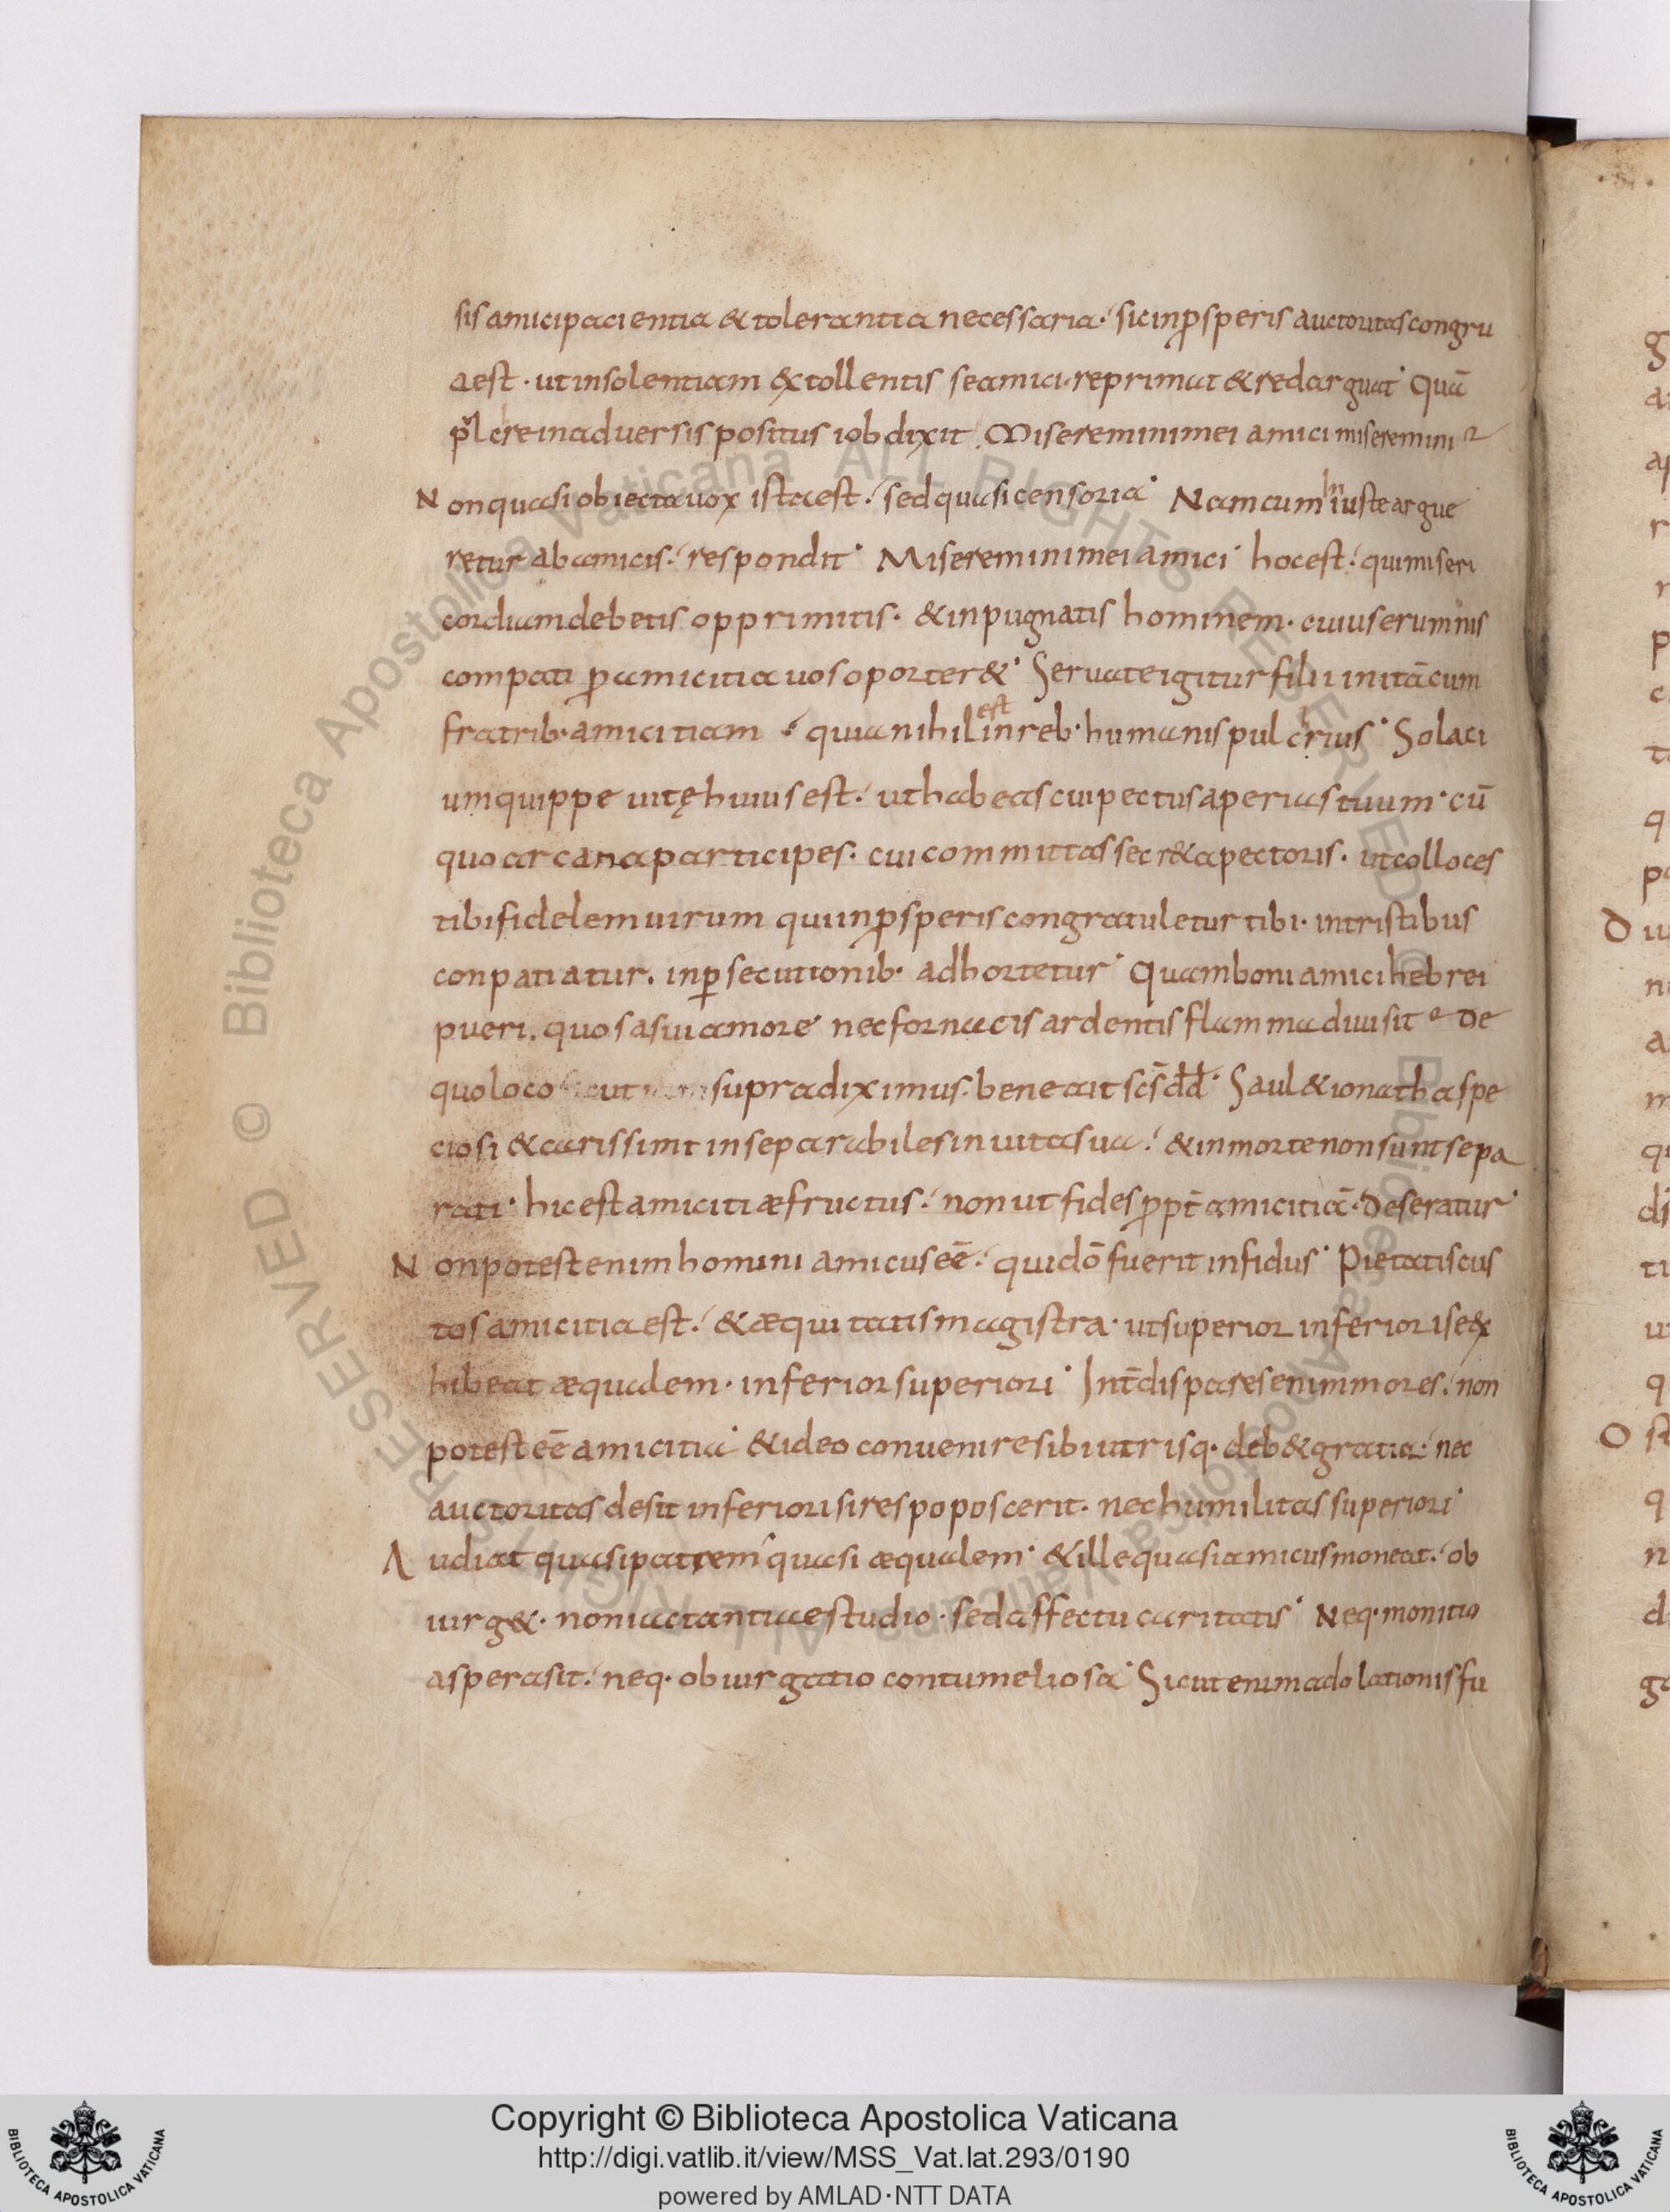 sis amici pacientia & tolerantia necessaria. sic in p̱speris auctoritas congru
a est. ut insolentiam & tollentis se amici. reprimat & redarguat. Quā
p̱lchre in aduersis positus iob dixit. Miseremini mei amici miseremini
Non quasi obiecta uox ista est. sed quasi censoria. Nam cum iniuste argue
retur ab amicis. respondit. Miseremini mei amici. hoc est. qui miseri
cordiam debetis opprimitis. & inpugnatis hominem. cuius erumnis
compati p̱ amicitia uos oporter&. Seruate igitur filii initā cum
fratrib. amicitiam quia nihil est in reb. humanis pulchrius. Solaci
um quippe uitę huius est. ut habeas cui pectus aperias tuum. cū
quo arcana participes. cui committas secr&a pectoris. ut colloces
tibi fidelem uirum qui in p̱speris congratuletur tibi. in tristibus
conpatiatur. in p̱secutionib. adhortetur. Quam boni amici hebrei
pueri. quos a sui amore nec fornacis ardentis flamma diuisit. De
quo loco supra diximus. bene ait sc̄s dd̄. Saul & ionatha spe
ciosi & carissimi inseparabiles in uita sua. & in morte non sunt sepa
rati. hic est amicitiæ fructus. non ut fides p̱pt̄ amicitiā. deseratur.
Non potest enim homini amicus eē. qui dō fuerit infidus. Pietatis cus
tos amicitia est. & æquitatis magistra. ut superior inferiori se ex
hibeat æqualem. inferior superiori. Int̄ dispares enim mores. non
potest eē amicitia. & ideo conuenire sibi utrisq. deb& gratia. nec
auctoritas desit inferiori si res poposcerit. nec humilitas superiori.
Audiat quasi patrem quasi æqualem. & ille quasi amicus moneat. ob
iurg&. non iactantiae studio. sed affectu caritatis. Neq. monitio
aspera sit. neq. obiurgatio contumeliosa. Sicut enim adolationis fu
© Biblioteca Apostolica Vaticana ALL RIGHTS RESERVED
Copyright © Biblioteca Apostolica Vaticana
http://digi.vatlib.it/view/MSS_Vat.lat.293/0190
powered by AMLAD·NTT DATA
BIBLIOTECA APOSTOLICA VATICANA
BIBLIOTECA APOSTOLICA VATICANA